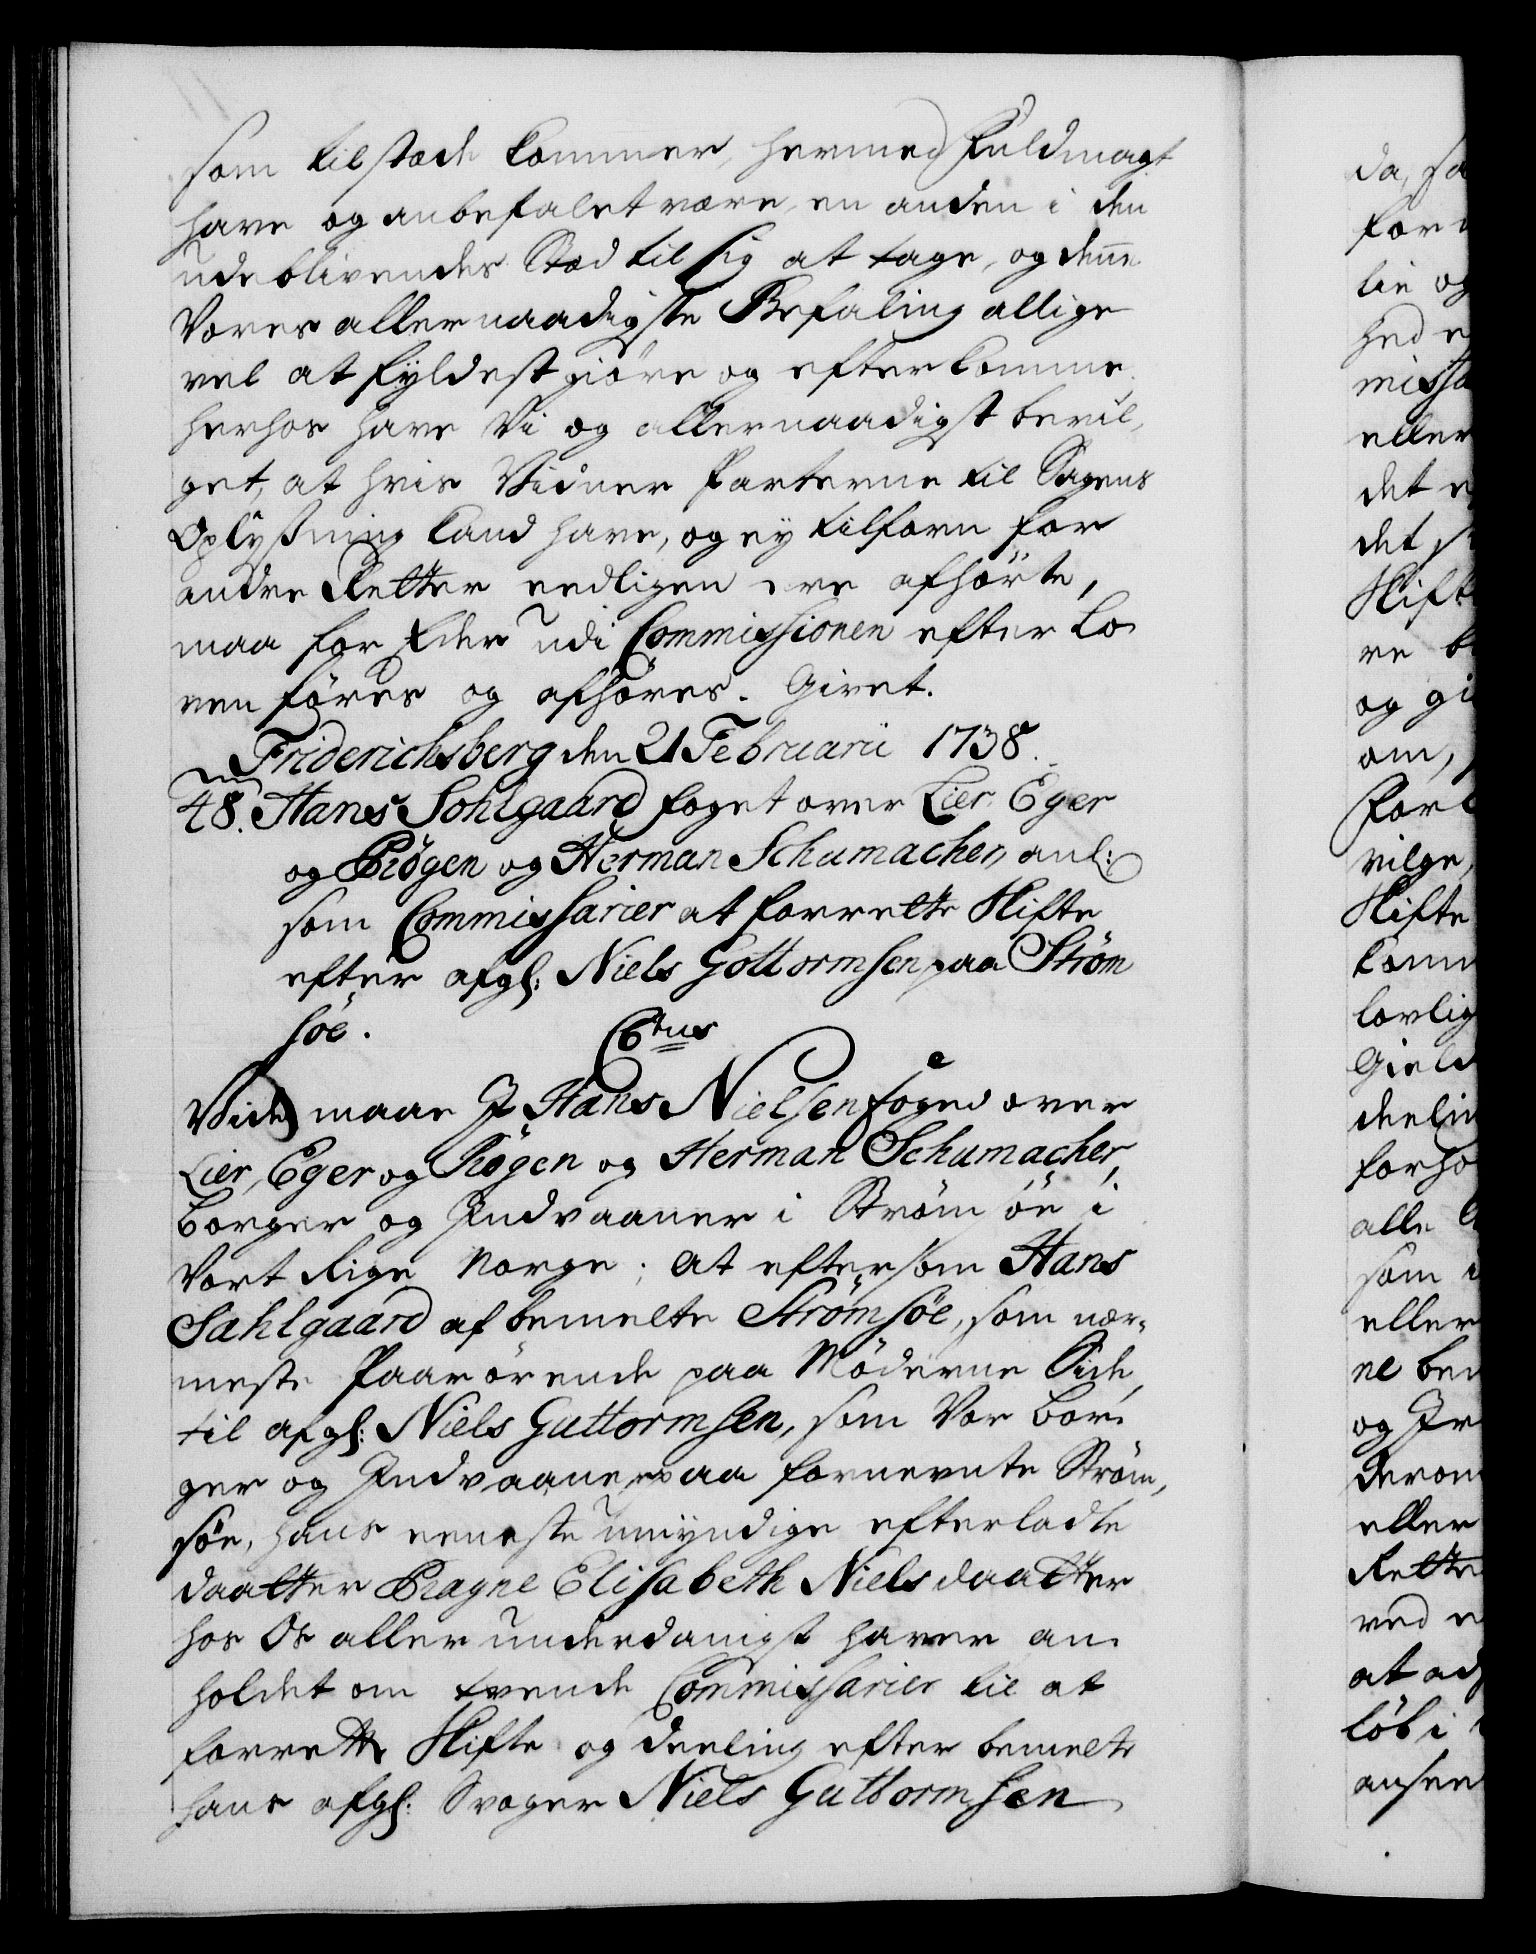 som tilstæde kommer, hermed Fuldmagt
have og anbefalet være, en anden i den
udeblivendes Stæd til sig at tage, og denne
Vores allernaadigste Befaling allige
vel at fyldestgiöre og efterkomme,
herhos have Vi og allernaadigst bevil,
get, at hvis Vidner Parterne til Sagens
Oplysning kand have, og ey tilforn for
andre Retter eedligen ere afhørte,
maa for Eder udi Commissionen efter Lo
ven føres og afhøres. Givet.
Friderichsberg den 21 Februarii 1738.
48. Hans Sohlgaard foget over Lier Eger
og Røgen og Herman Schumacher, anl:
som Commissarier at forrette Skifte
efter afgl: Niels Gottormsen paa Strøm
söe.
Ctus
Vide maae I Hans Nielsen foged over
Lier, Eger og Røgen og Herman Schumacher,
Borger og Indvaaner i Strömsöe i
Vort Rige Norge; At eftersom Hans
Sahlgaard af bemelte Strömsöe, som nær¬
meste Paarörende paa Möderne Side,
til afgl: Niels Guttormsen, som Vor Bor¬
ger og Indvaaner paa fornevnte Ström,
söe, hans eeneste umyndige efterladte
daatter Ragne Elisabeth Nielsdaatter
hos Os allerunderdanigst haver an¬
holdet om tvende Commissarier til at
forrette Skifte og deeling efter bemelte
hans afgl: Svoger Niels Guttormsen
da, sa
for
lie og
hed e
missa
eller
det e
det s
Skift
re b
og gi
om,
For
vilge,
Skifte
komm
lovlig
Gield
deelin
forho
alle
som i
eller
ne be
og Ir
derom
eller
Rette
ved e
at ad
löb i
ansee